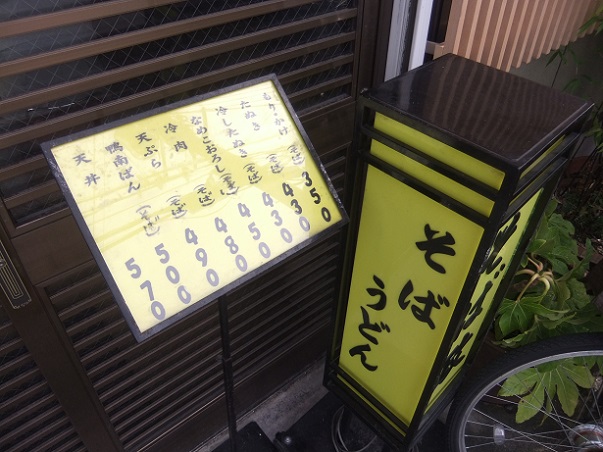 もりかけ（そば）350
たぬき（そば）430
冷したぬき（そば）430
なめこおろし（そば）450
冷肉（そば）480
天ぷら（そば）490
鴨南ばん（そば）500
天丼 570
そば
うどん